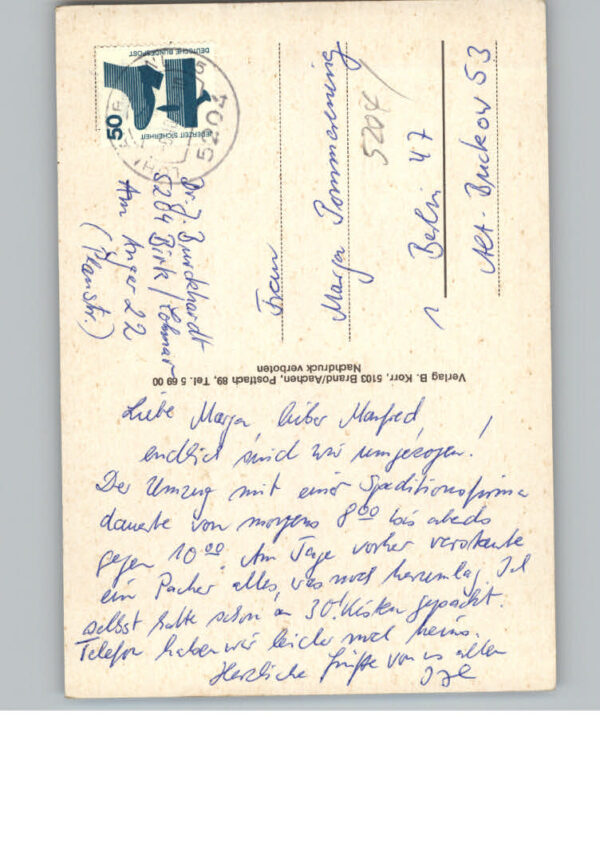 DEUTSCHE BUNDESPOST
JEDERZEIT SICHERHEIT
50
5204
Dr. J. Burckhardt
5204 Birk/Lohmar
Am Anger 22
(Planstr.)
Frau
Marga Pommerening
5204
1 Berlin 47
Alt-Buckow 53
Verlag B. Korr, 5103 Brand/Aachen, Postfach 89, Tel. 5 69 00
Nachdruck verboten
Liebe Marga, lieber Manfred,
endlich sind wir umgezogen!
Der Umzug mit einer Speditionsfirma
dauerte von morgens 8⁰⁰ bis abends
gegen 10⁰⁰. Am Tage vorher verstaute
ein Packer alles, was noch herumlag. Ich
selbst hatte schon an 30! Kisten gepackt.
Telefon haben wir leider noch keins.
Herzliche Grüße von us allen